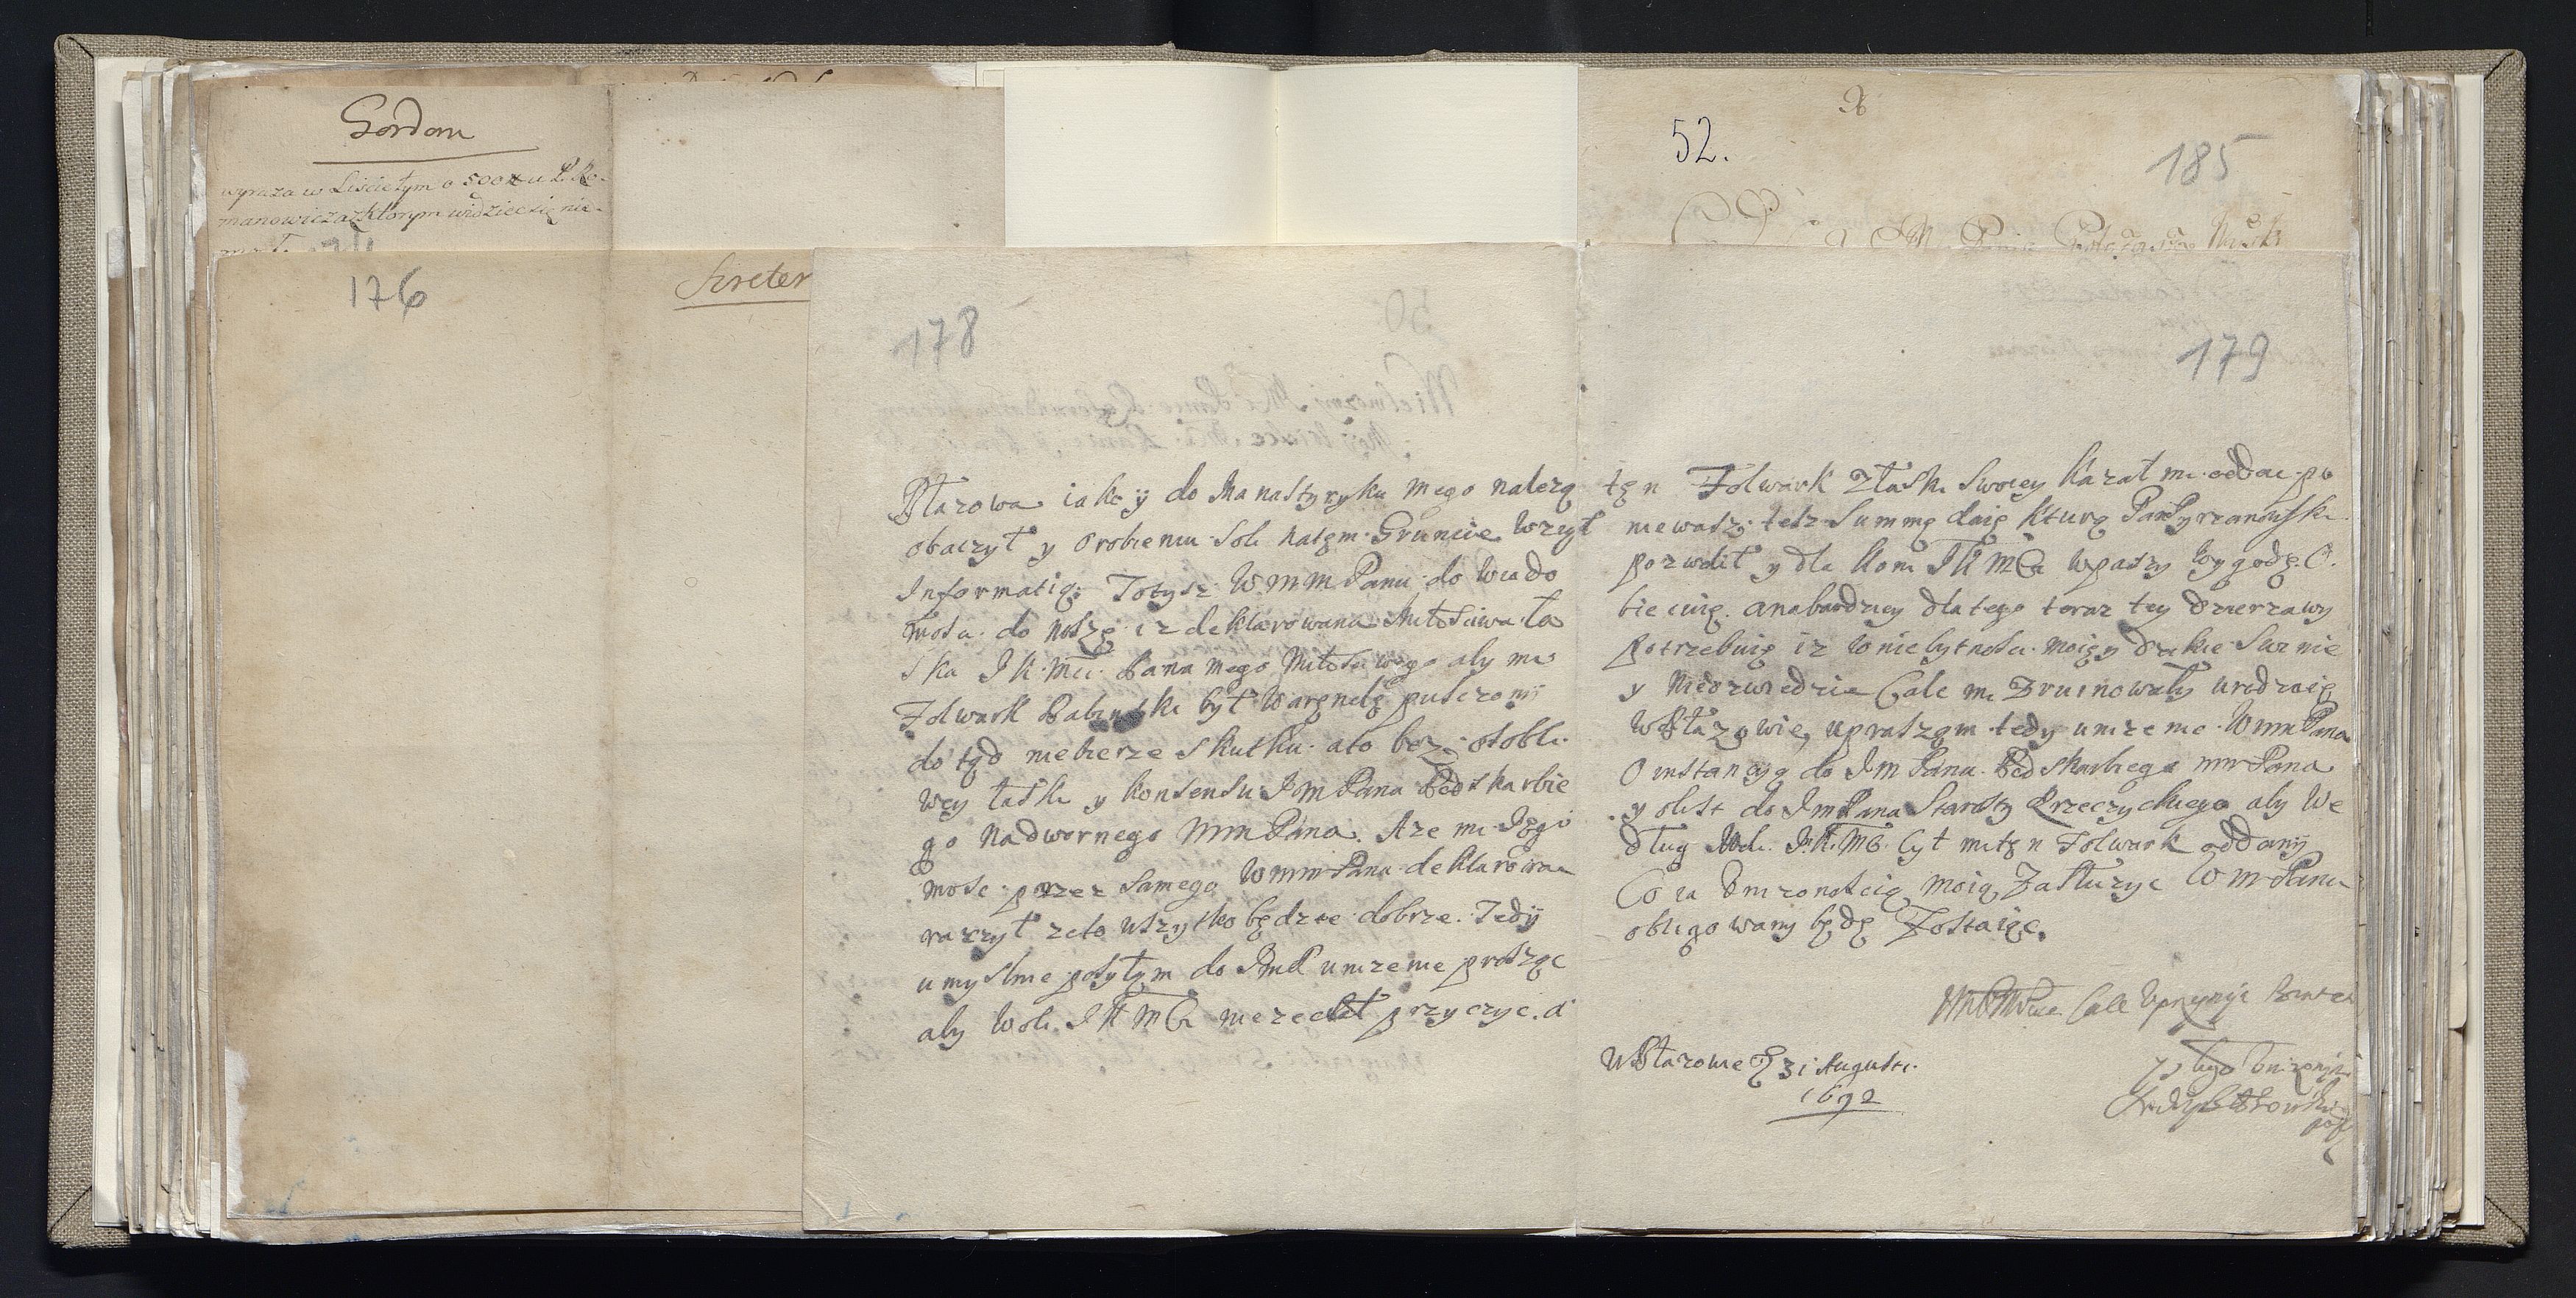 Gordon
wyraza w Liście tym o 500 u P. Ro-
manowicza z ktorym widziec się nie
176
Sreter
178
Płazowa iako ÿ do Manastyryku mego nalezą
obaczył y o robieniu soli na tęm Gruncie wziął
Informatią. Totysz WMM Panu do wiado
mosci do noszę iz deklarowana Miłosciwa ła
ska J K Mci Pana mego Miłosciwego aby mi
Folwark był w aręndę pusczonÿ
do tąd niebierze skutku ato bez osobli
wey łaski y konsensu JM Pana Podskarbie
go Nadwornego MM Pana. Aze mi Jego
mosc przez samego WMM Pana deklarowac
raczył ze to wszystko będzie dobrze. Tedÿ
umyslnie posyłąm do unizenie prosząc
aby woli J K Mci niezechciał przyczyc. a
52.
185
179
tęn Folwark z łaski swoiey kazał mi oddac po
niewasz tesz summę daię kturą Pan
pozwolił y dla koni J K MCi w paszy wygodę O.
biecuię. a nabardziey dla tego teraz tey dzierzawy
potrzebuię iz w niebytnosci moięy dzikie swinie
y Niedzwiedzie cale mi zruinowały urodzaie
w Płazowie, uprasząm tedy unizenie WMM Pana
O instancyą do JM Pana Podskarbiego MM Pana
y o list do JM Pana Starosty Przeczyckiego aby we
dług woli J.K.MCi był mi tęn Folwark oddanÿ
Co ia unizonoscią moią zasłuzyc WM Panu
obligowany będę Zostaiąc.
cale uprzymie
W Płazowie D 31 Augusti
1692
y sługa unizonÿ